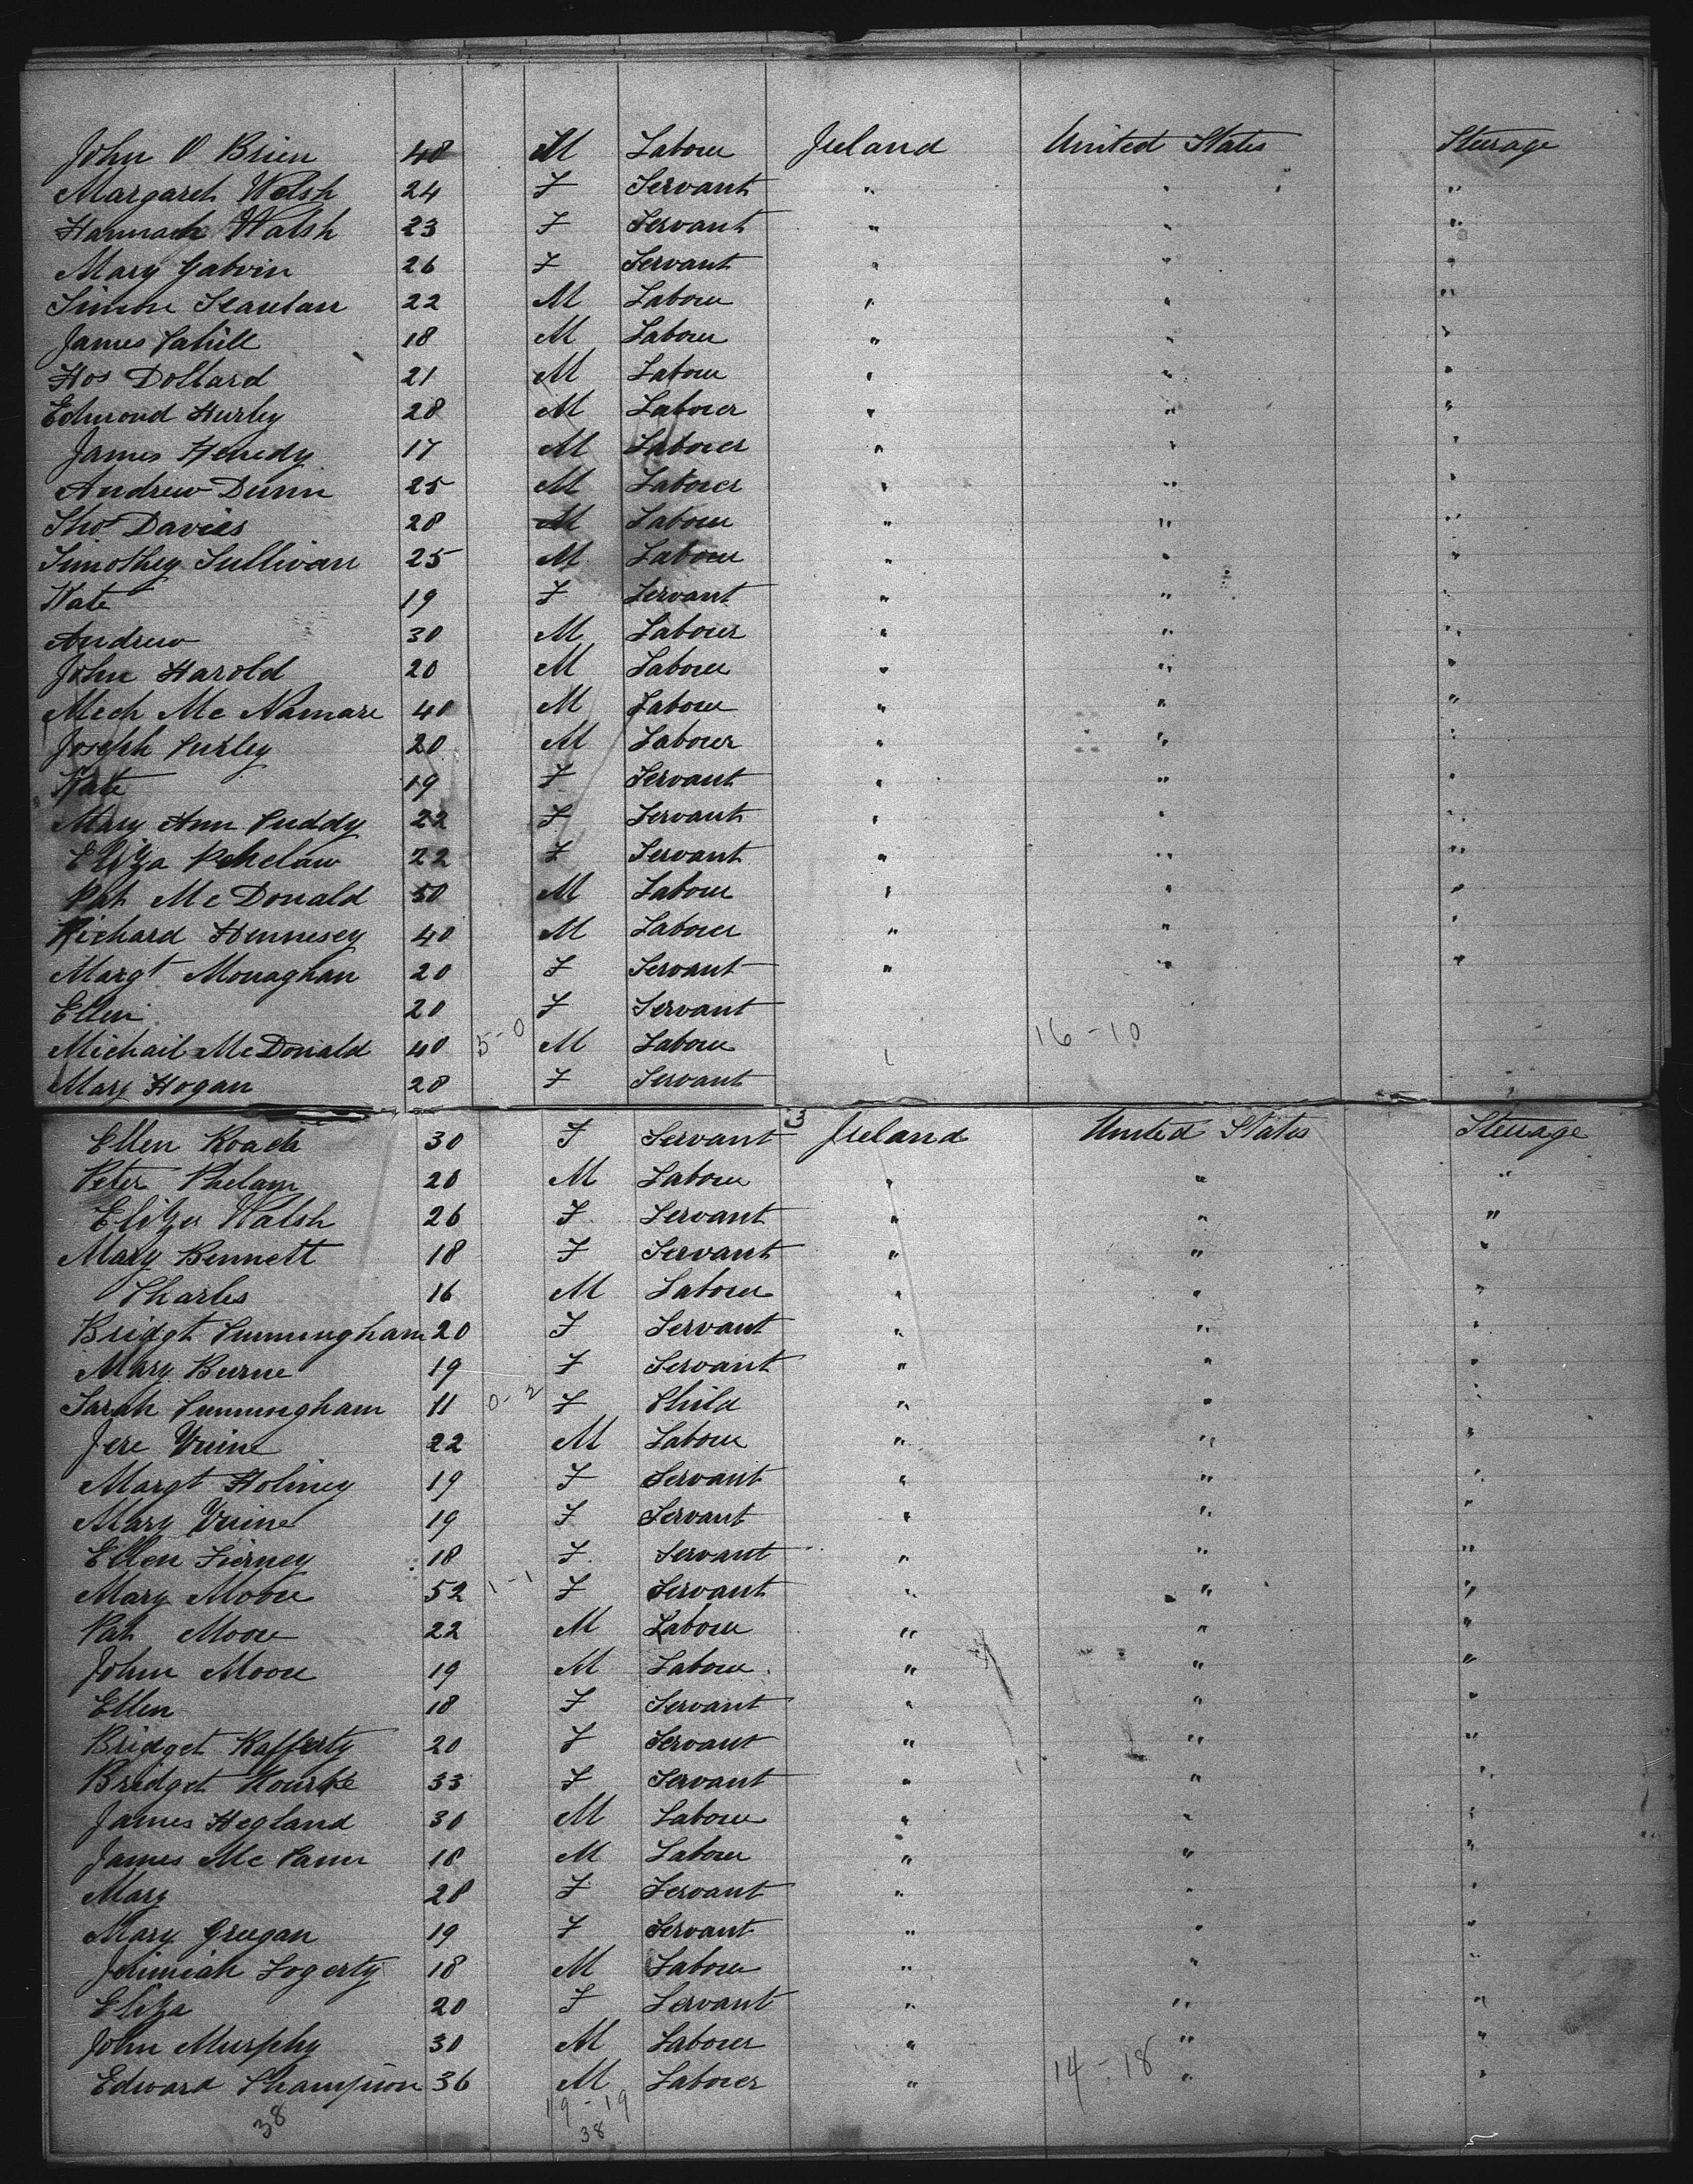 John O Brien 48 M Labour Ireland United States Steerage
Margaret Walsh 24 F Servant " " "
Hannah Walsh 23 F Servant " " "
Mary Galvin 26 F Servant " " "
Simon Scanlan 22 M Labour " " "
James Cahill 18 M Labour " " "
Hos Dollard 21 M Labour " " "
Edmond Hurley 28 M Labour " " "
James Henedy 17 M Labour " " "
Andrew Dunn 25 M Labour " " "
Thos Davies 28 M Labour " " "
Timothy Sullivan 25 M Labour " " "
Kate 19 F Servant " " "
Andrew 30 M Labour " " "
John Harold 20 M Labour " " "
Mich Mc Namare 40 M Labour " " "
Joseph Curley 20 M Labour " " "
Kate 19 F Servant " " "
Mary Ann Cuddy 22 F Servant " " "
Eliza Phelaw 22 F Servant " " "
Pat Mc Donald 50 M Labour " " "
Richard Hennesey 40 M Labour " " "
Margt Monaghan 20 F Servant " " "
Ellen 20 F Servant
Michail McDonald 40 5-0 M Labour 1 16-10
Mary Hogan 28 F Servant
Ellen Roach 30 F Servant 3 Ireland United States Steerage
Peter Phelam 20 M Labour " " "
Eliza Walsh 26 F Servant " " "
Mary Bennett 18 F Servant " " "
Charles 16 M Labour " " "
Bridgt Cunningham 20 F Servant " " "
Mary Burne 19 F Servant " " "
Sarah Cunningham 11 0-2 F Child " " "
Jere 22 M Labour " " "
Margt Holmey 19 F Servant " " "
Mary 19 F Servant " " "
Ellen Tierney 18 F Servant " " "
Mary Moore 52 1-1 F Servant " " "
Pat Moore 22 M Labour " " "
John Moore 19 M Labour " " "
Ellen 18 F Servant " " "
Bridget Rafferty 20 F Servant " " "
Bridget Rourke 33 F Servant " " "
James Hegland 30 M Labour " " "
James Mc Cann 18 M Labour " " "
Mary 28 F Servant " " "
Mary Greegan 19 F Servant " " "
Jerimiah Fogerty 18 M Labour " " "
Eliza 20 F Servant " " "
John Murphy 30 M Labour " " "
Edward Champion 36 M Labour " 14-18 " "
38 19-19
38